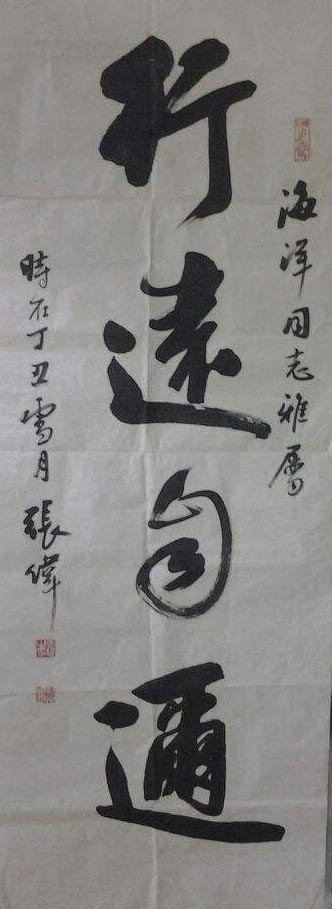 海洋同志雅屬
行遠自邇
時在丁丑雪月 張偉